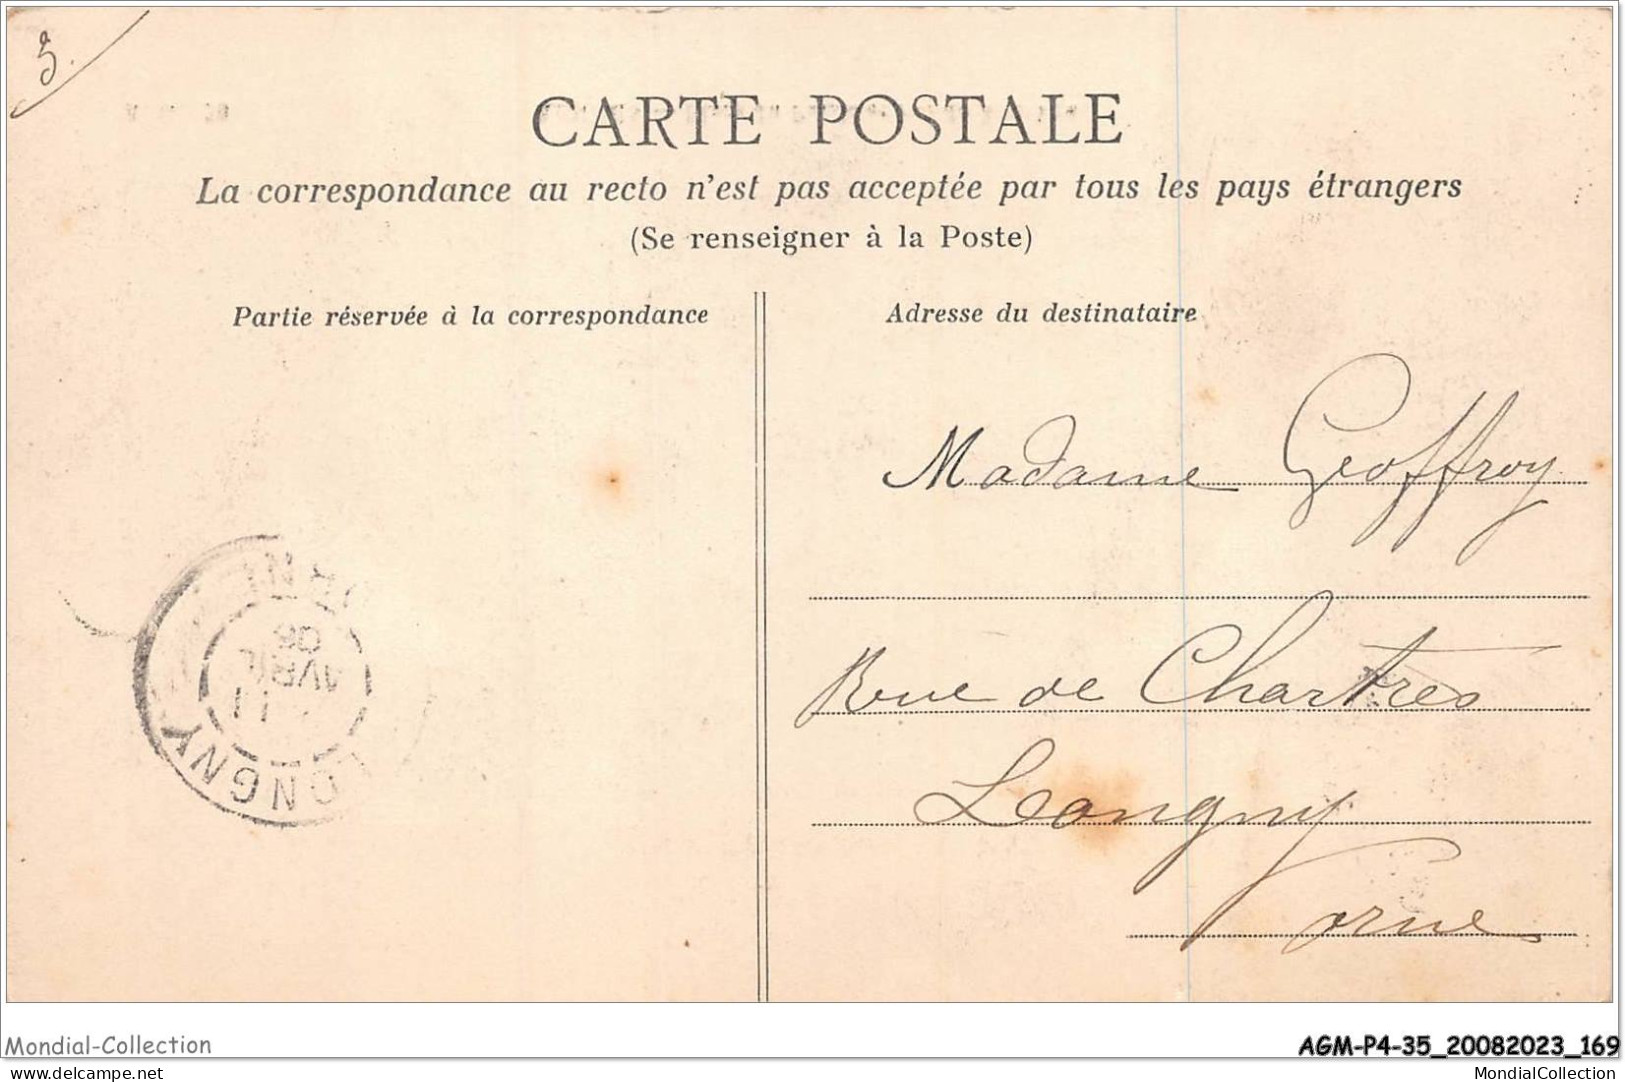 5.
CARTE POSTALE
La correspondance au recto n'est pas acceptée par tous les pays étrangers
(Se renseigner à la Poste)
Partie réservée à la correspondance
Adresse du destinataire
Madame Geoffroy
Rue de Chartres
Longny
Orne
LONGNY
11
AVRIL
06
Mondial-Collection
AGM-P4-35_20082023_169
www.delcampe.net
MondialCollection